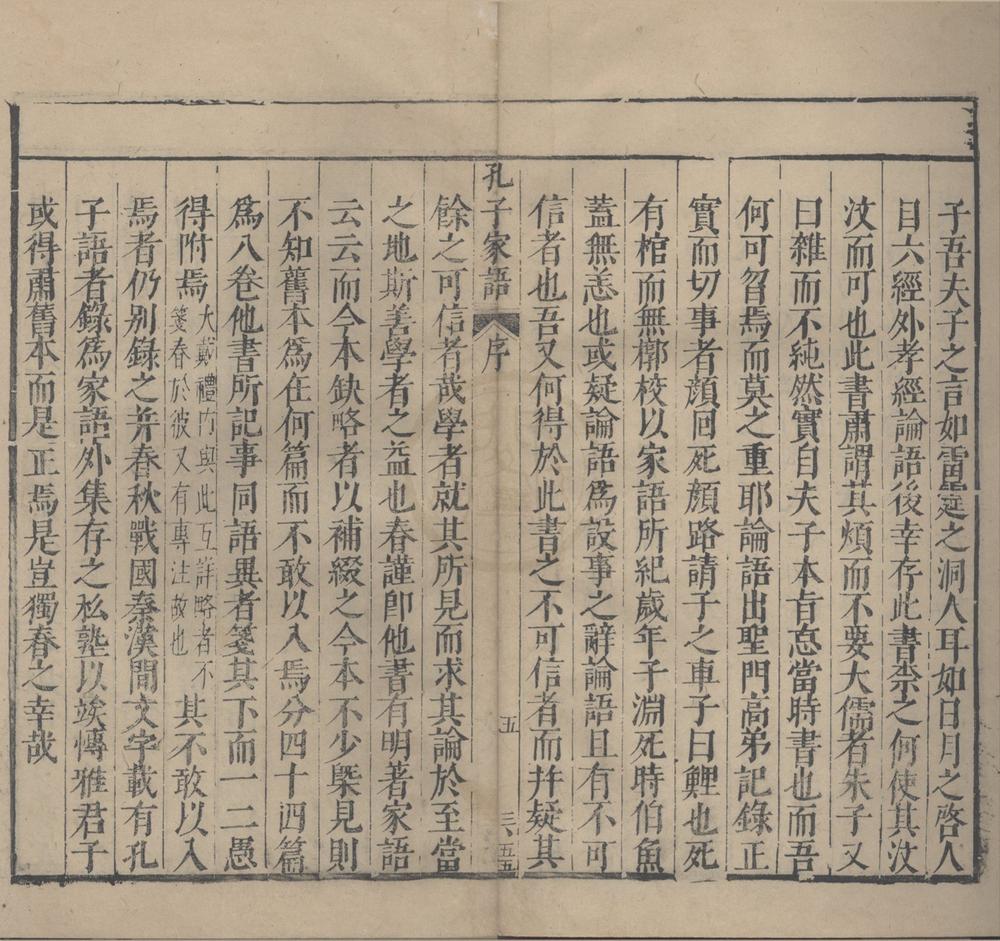 子吾夫子之言如雷霆之洞人耳如日月之啓人
目六經外孝經論語後幸存此書柰之何使其汶
汶而可也此書肅謂其煩而不要大儒者朱子又
曰雜而不純然實自夫子本旨亦當時書也而吾
何可忽焉而莫之重耶論語出聖門高弟記錄正
實而切事者顔回死顔路請子之車子曰鯉也死
有棺而無槨校以家語所紀歲年子淵死時伯魚
蓋無恙也或疑論語爲設事之辭論語且有不可
信者也吾又何得於此書之不可信者而幷疑其
孔子家語 序 五 三、五五
餘之可信者哉學者就其所見而求其論於至當
之地斯善學者之益也春謹卽他書有明著家語
云云而今本缺略者以補綴之今本不少槩見則
不知舊本爲在何篇而不敢以入焉分四十四篇
爲八卷他書所記事同語異者箋其下而一二愚
得附焉大戴禮內與此互詳略者不箋春於彼又有專注故也其不敢以入
焉者仍别錄之幷春秋戰國秦漢間文字載有孔
子語者錄爲家語外集存之私塾以竢愽雅君子
或得肅舊本而是正焉是豈獨春之幸哉